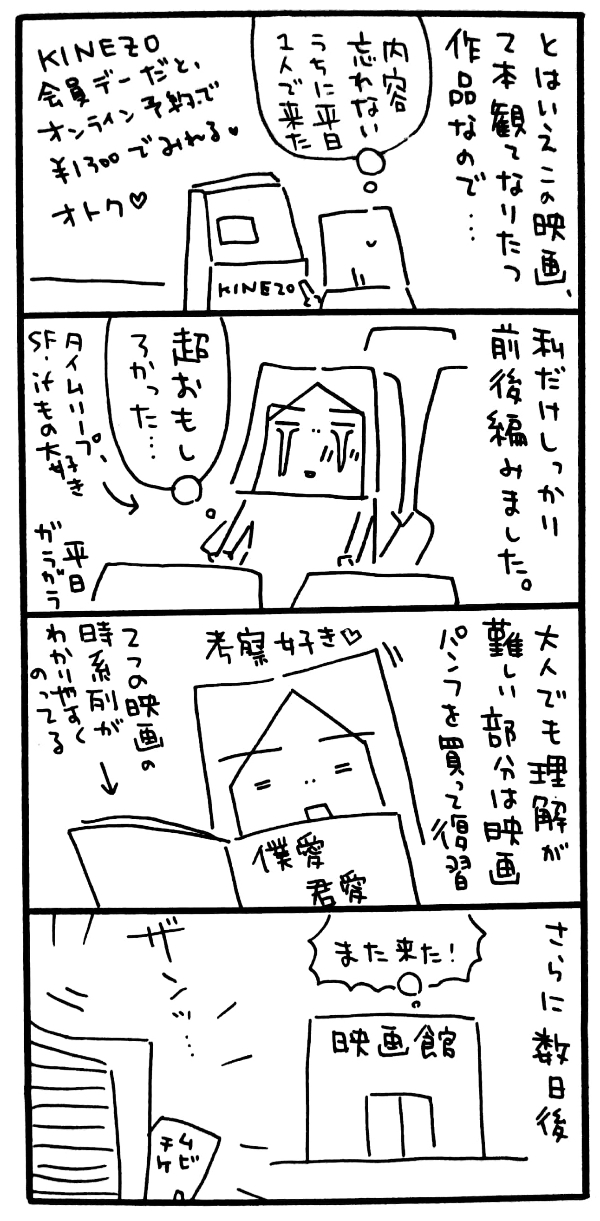 とはいえこの映画、
2本観てなりたつ
作品なので…
内容
忘れない
うちに平日
1人で来た
KINEZO
会員デーだと、
オンライン予約で
¥1300でみれる。
オトク♡
KINEZO
私だけしっかり
前後編みました。
超おもし
ろかった…
タイムリープ、
SF・ifもの大好き
平日
ガラガラ
大人でも理解が
難しい部分は映画
パンフを買って復習
考察好き♡
2つの映画の
時系列が
わかりやすく
のってる
僕愛
君愛
さらに数日後
また来た!
映画館
ザンッ…
ムビ
チケ